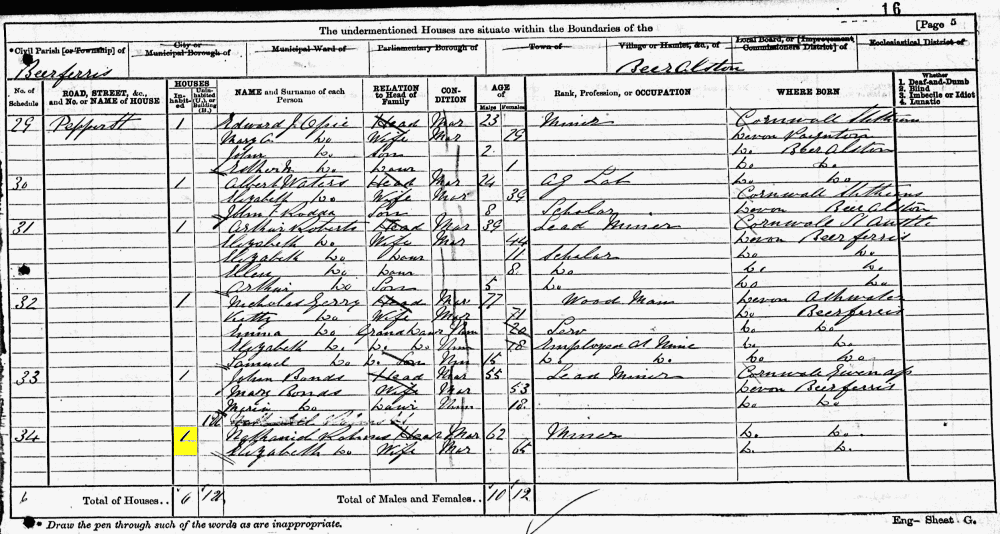 16
The undermentioned Houses are situate within the Boundaries of the [Page 5
Civil Parish [or Township] of
City or Municipal Borough of
Municipal Ward of
Parliamentary Borough of
Town of
Village or Hamlet, &c., of
Local Board, or [Improvement Commissioners District] of
Ecclesiastical District of
Beerferris Beer Alston
No. of Schedule
ROAD, STREET, &c., and No. or NAME of HOUSE
HOUSES
In-habit-ed
Unin-habited (U.), or Building (B.)
NAME and Surname of each Person
RELATION to Head of Family
CON-DITION
AGE of
Males Females
Rank, Profession, or OCCUPATION
WHERE BORN
Whether
1. Deaf-and-Dumb
2. Blind
3. Imbecile or Idiot
4. Lunatic
29 1 Edward J. Opie Head Mar 23 Miner Cornwall
Mary Do Wife Mar 29 Devon
John Do Son 2 Do Beer Alston
Do Daur 1 Do Do
30 1 Albert Waters Head Mar 24 Ag Lab Do Do
Elizabeth Do Wife Mar 39 Cornwall
John Rodda Son 8 Scholar Devon Beer Alston
31 1 Arthur Roberts Head Mar 39 Lead Miner Cornwall St
Elizabeth Do Wife Mar 44 Devon Beerferris
Elizabeth Do Daur 11 Scholar Do Do
Ellen Do Daur 8 Do Do Do
Arthur Do Son 5 Do Do Do
32 1 Nicholas Head Mar 77 Wood Man Devon Ashwater
Kitty Do Wife Mar 71 Do Beerferris
Emma Do Grand Daur Unm 20 Serv Do Do
Elizabeth Do Do Do Unm 18 Employed at Mine Do Do
Samuel Do Do Son Unm 15 Do Do Do Do
33 1 Bonds Head Mar 55 Lead Miner Cornwall Gwennap
Mary Bonds Wife Mar 53 Devon Beerferris
Do Daur Unm 18 Do Do
1U
34 1 Nathaniel Head Mar 62 Miner Do Do
Elizabeth Do Wife Mar 65 Do Do
6 Total of Houses.. 6 1U Total of Males and Females.. 10 12
* Draw the pen through such of the words as are inappropriate.
Eng- Sheet G.